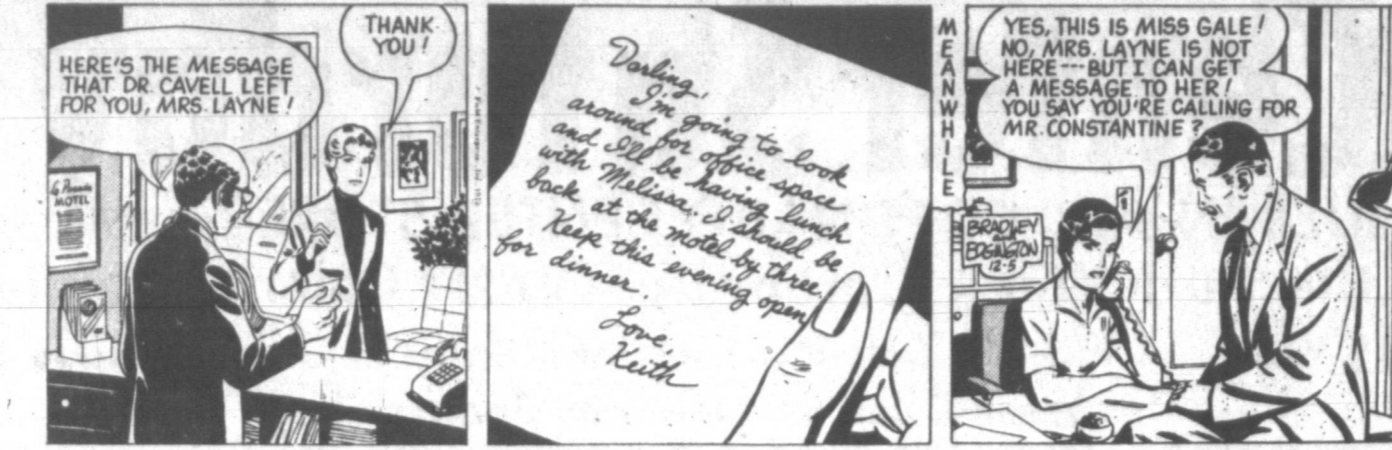 HERE'S THE MESSAGE
THAT DR. CAVELL LEFT
FOR YOU, MRS. LAYNE!
THANK
YOU!
MOTEL
Darling,
I'm going to look
around for office space
and I'll be having lunch
with Melissa. I should be
back at the motel by three.
Keep this evening open
for dinner.
Love,
Keith
MEANWHILE
YES, THIS IS MISS GALE!
NO, MRS. LAYNE IS NOT
HERE---BUT I CAN GET
A MESSAGE TO HER!
YOU SAY YOU'RE CALLING FOR
MR. CONSTANTINE?
BRADLEY
and
EDGINGTON
12-5